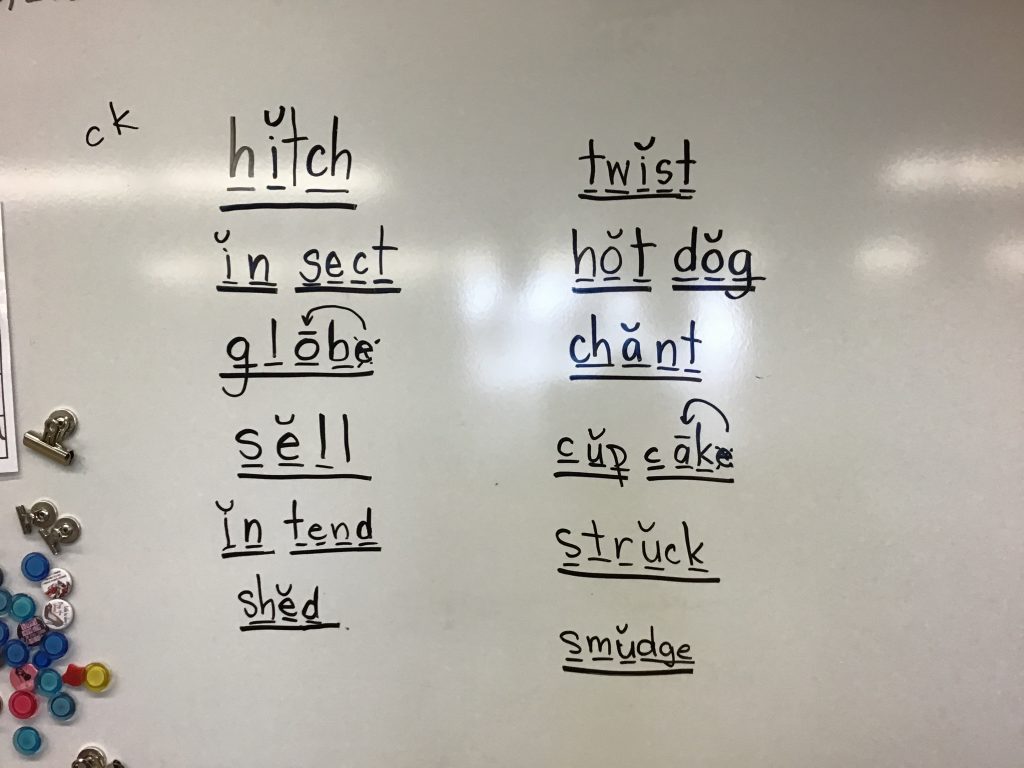 ck
hĭtch
ĭn sect
glōbe
sĕll
ĭn tend
shĕd
twĭst
hŏt dŏg
chănt
cŭp cāke
strŭck
smŭdge